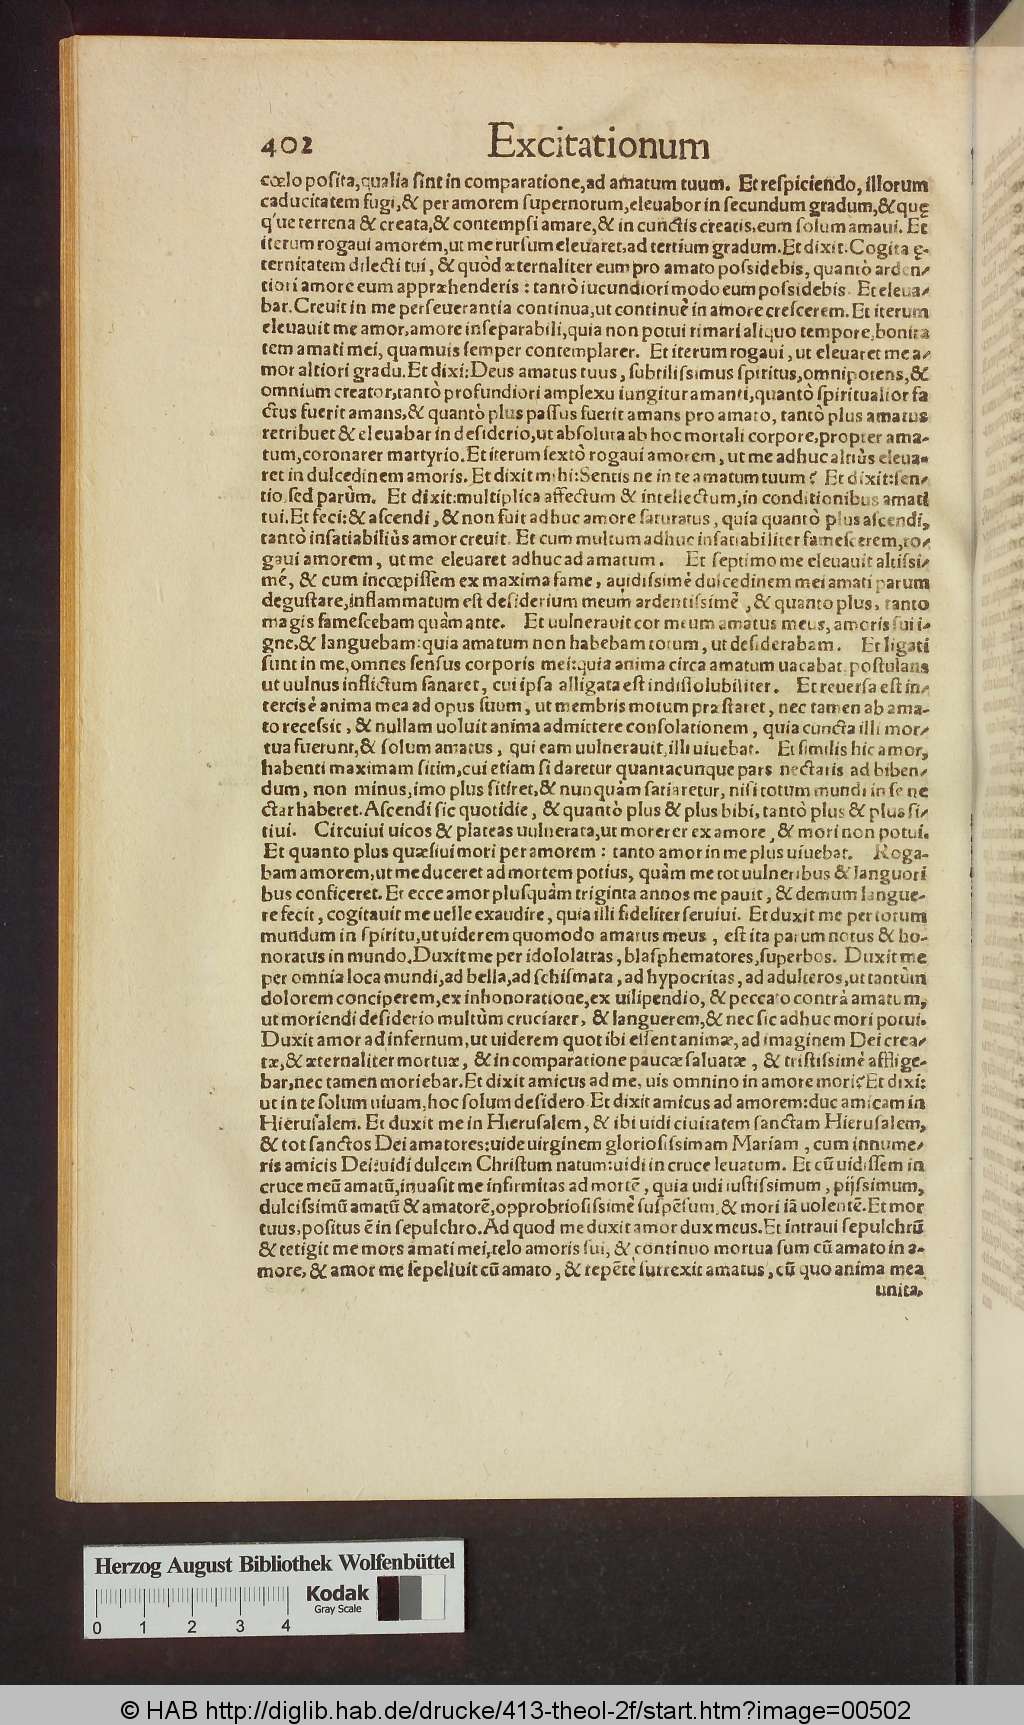 402 Excitationum
cœlo posita, qualia sint in comparatione, ad amatum tuum. Et respiciendo, illorum
caducitatem fugi, & per amorem supernorum, eleuabor in secundum gradum, & quę
q́ue terrena & creata, & contempsi amare, & in cunctis creatis, eum solum amaui. Et
iterum rogaui amorem, ut me rursum eleuaret, ad tertium gradum. Et dixit. Cogita ę-
ternitatem dilecti tui, & quòd æternaliter eum pro amato possidebis, quantò arden-
tiori amore eum appræhenderis: tantò iucundiori modo eum possidebis. Et eleua-
bar. Creuit in me perseuerantia continua, ut continuè in amore crescerem. Et iterum
eleuauit me amor, amore inseparabili, quia non potui rimari aliquo tempore, bonita
tem amati mei, quamuis semper contemplarer. Et iterum rogaui, ut eleuaret me a-
mor altiori gradu. Et dixi: Deus amatus tuus, subtilissimus spiritus, omnipotens, &
omnium creator, tantò profundiori amplexu iungitur amanti, quantò spiritualior fa
ctus fuerit amans, & quantò plus passus fuerit amans pro amato, tantò plus amatus
retribuet & eleuabar in desiderio, ut absoluta ab hoc mortali corpore, propter ama-
tum, coronarer martyrio. Et iterum sextò rogaui amorem, ut me adhuc altiùs eleua-
ret in dulcedinem amoris. Et dixit mihi: Sentis ne in te amatum tuum? Et dixit: sen-
tio sed parùm. Et dixit: multiplica affectum & intellectum, in conditionibus amati
tui. Et feci: & ascendi, & non fuit adhuc amore saturatus, quia quantò plus ascendi,
tantò insatiabiliùs amor creuit. Et cum multum adhuc insatiabiliter famescerem, ro-
gaui amorem, ut me eleuaret adhuc ad amatum. Et septimo me eleuauit altissi-
mé, & cum incœpissem ex maxima fame, auidissimè dulcedinem mei amati parum
degustare, inflammatum est desiderium meum ardentissimè, & quanto plus, tanto
magis famescebam quàm ante. Et uulnerauit cor meum amatus meus, amoris sui i-
gne, & languebam: quia amatum non habebam totum, ut desiderabam. Et ligati
sunt in me, omnes sensus corporis mei: quia anima circa amatum uacabat, postulans
ut uulnus inflictum sanaret, cui ipsa alligata est indissolubiliter. Et reuersa est in-
tercisè anima mea ad opus suum, ut membris motum præstaret, nec tamen ab ama-
to recessit, & nullam uoluit anima admittere consolationem, quia cuncta illi mor-
tua fuerunt, & solum amatus, qui eam uulnerauit, illi uiuebat. Et similis hic amor,
habenti maximam sitim, cui etiam si daretur quantacunque pars nectaris ad biben-
dum, non minus, imo plus sitiret, & nunquàm satiaretur, nisi totum mundi in se ne
ctar haberet. Ascendi sic quotidie, & quantò plus & plus bibi, tantò plus & plus si-
tiui. Circuiui uicos & plateas uulnerata, ut morerer ex amore, & mori non potui.
Et quanto plus quæsiui mori per amorem: tanto amor in me plus uiuebat. Roga-
bam amorem, ut me duceret ad mortem potius, quàm me tot uulneribus & languori
bus conficeret. Et ecce amor plusquàm triginta annos me pauit, & demum langue-
re fecit, cogitauit me uelle exaudire, quia illi fideliter seruiui. Et duxit me per totum
mundum in spiritu, ut uiderem quomodo amatus meus, est ita parum notus & ho-
noratus in mundo. Duxit me per idololatras, blasphematores, superbos. Duxit me
per omnia loca mundi, ad bella, ad schismata, ad hypocritas, ad adulteros, ut tantùm
dolorem conciperem, ex inhonoratione, ex uilipendio, & peccato contrà amatum,
ut moriendi desiderio multùm cruciarer, & languerem, & nec sic adhuc mori potui.
Duxit amor ad infernum, ut uiderem quot ibi essent animæ, ad imaginem Dei crea-
tæ, & æternaliter mortuæ, & in comparatione paucæ saluatæ, & tristissimè afflige-
bar, nec tamen moriebar. Et dixit amicus ad me, uis omnino in amore mori? Et dixi:
ut in te solum uiuam, hoc solum desidero. Et dixit amicus ad amorem: duc amicam in
Hierusalem. Et duxit me in Hierusalem, & ibi uidi ciuitatem sanctam Hierusalem,
& tot sanctos Dei amatores: uide uirginem gloriosissimam Mariam, cum innume-
ris amicis Dei: uidi dulcem Christum natum: uidi in cruce leuatum. Et cū uidissem in
cruce meū amatū, inuasit me infirmitas ad mortē, quia uidi iustissimum, pijssimum,
dulcissimū amatū & amatorē, opprobriosissimè suspēsum, & mori iā uolentē. Et mor
tuus, positus ē in sepulchro. Ad quod me duxit amor dux meus. Et intraui sepulchrū
& tetigit me mors amati mei, telo amoris sui, & continuo mortua sum cū amato in a-
more, & amor me sepeliuit cū amato, & repētè surrexit amatus, cū quo anima mea
unita,
Herzog August Bibliothek Wolfenbüttel
Kodak
Gray Scale
0 1 2 3 4
© HAB http://diglib.hab.de/drucke/413-theol-2f/start.htm?image=00502